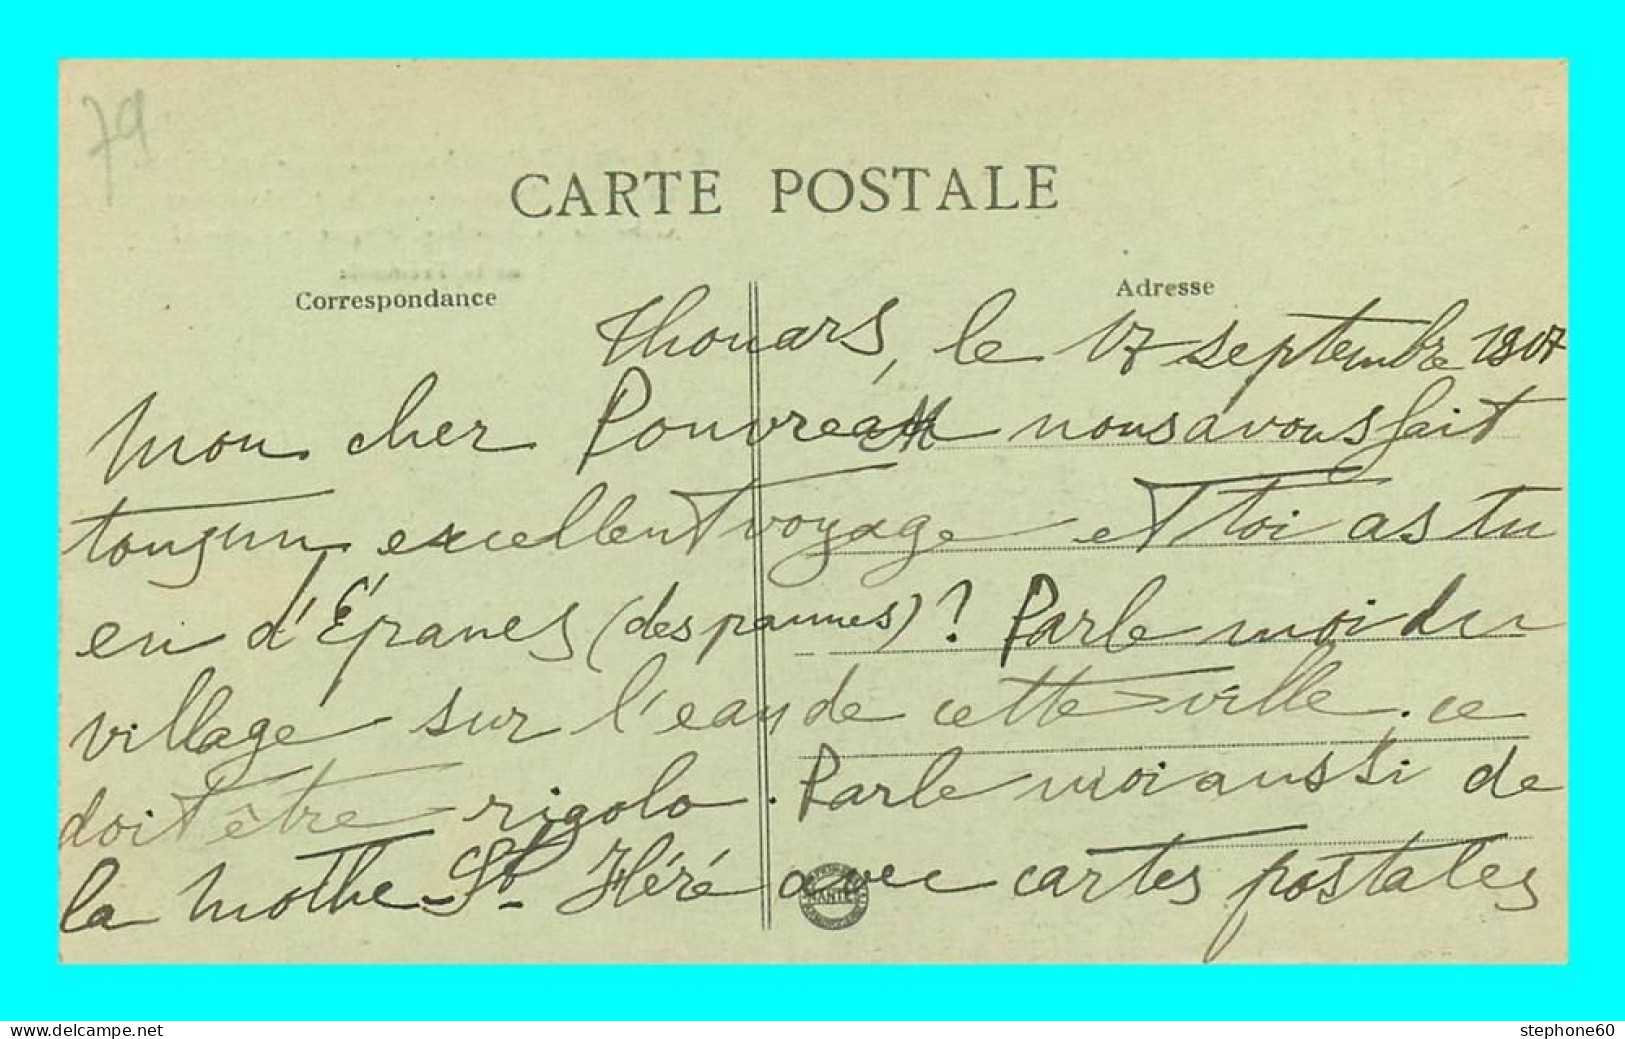 79
CARTE POSTALE
Correspondance
Adresse
Thouars, le 17 septembre 1907
Mon cher Pouvreau nous avons fait
tous un excellent voyage et toi as tu
eu d'Épanes (des pannes) ? Parle moi du
village sur l'eau de cette ville. ce
doit être rigolo. Parle moi aussi de
la Mothe-St-Héré avec cartes postales
NANTES
delcampe.net
stephone60